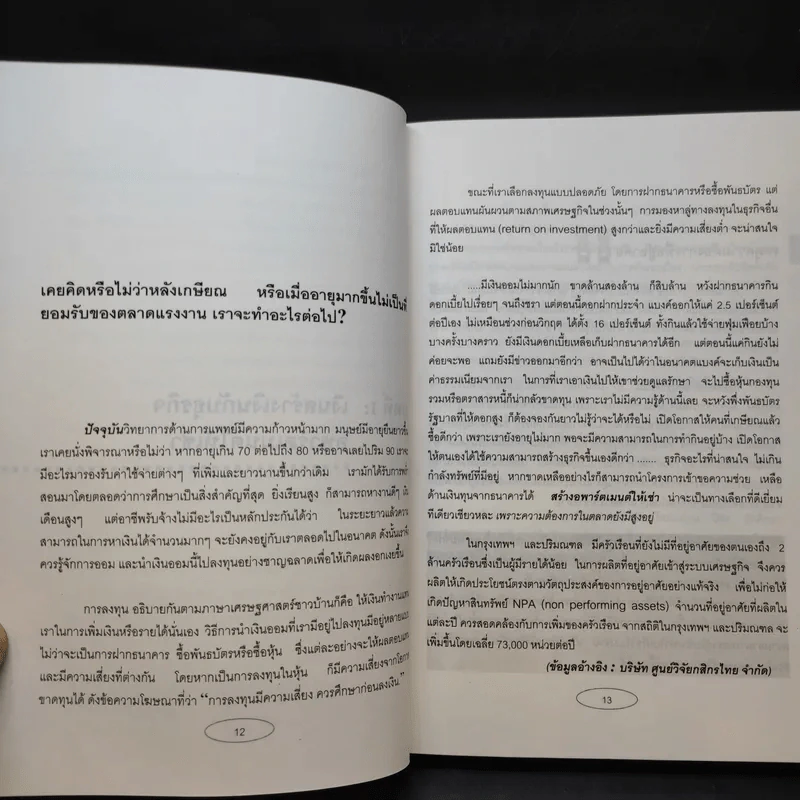 เคยคิดหรือไม่ว่าหลังเกษียณ หรือเมื่ออายุมากขึ้นไม่เป็นที่
ยอมรับของตลาดแรงงาน เราจะทำอะไรต่อไป?
ปัจจุบันวิทยาการด้านการแพทย์มีความก้าวหน้ามาก มนุษย์มีอายุยืนยาวขึ้น
เราเคยนั่งพิจารณาหรือไม่ว่า หากอายุเกิน 70 ต่อไปถึง 80 หรืออาจเลยไปริม 90 เราจะ
มีอะไรมารองรับค่าใช้จ่ายต่างๆ ที่เพิ่มและยาวนานขึ้นกว่าเดิม เรามักได้รับการพร่ำ
สอนมาโดยตลอดว่าการศึกษาเป็นสิ่งสำคัญที่สุด ยิ่งเรียนสูง ก็สามารถหางานดีๆ เงิน
เดือนสูงๆ แต่อาชีพรับจ้างไม่มีอะไรเป็นหลักประกันได้ว่า ในระยะยาวแล้วความ
สามารถในการหาเงินได้จำนวนมากๆ จะยังคงอยู่กับเราตลอดไปในอนาคต ดังนั้นเราจึง
ควรรู้จักการออม และนำเงินออมนี้ไปลงทุนอย่างชาญฉลาดเพื่อให้เกิดผลงอกเงยขึ้น
การลงทุน อธิบายกันตามภาษาเศรษฐศาสตร์ชาวบ้านก็คือ ให้เงินทำงานแทน
เราในการเพิ่มเงินหรือรายได้นั่นเอง วิธีการนำเงินออมที่เรามีอยู่ไปลงทุนมีอยู่หลายแบบ
ไม่ว่าจะเป็นการฝากธนาคาร ซื้อพันธบัตรหรือซื้อหุ้น ซึ่งแต่ละอย่างจะให้ผลตอบแทน
และมีความเสี่ยงที่ต่างกัน โดยหากเป็นการลงทุนในหุ้น ก็มีความเสี่ยงจากโอกาส
ขาดทุนได้ ดังข้อความโฆษณาที่ว่า “การลงทุนมีความเสี่ยง ควรศึกษาก่อนลงเงิน”
12
ขณะที่เราเลือกลงทุนแบบปลอดภัย โดยการฝากธนาคารหรือซื้อพันธบัตร แต่
ผลตอบแทนผันผวนตามสภาพเศรษฐกิจในช่วงนั้นๆ การมองหาลู่ทางลงทุนในธุรกิจอื่น
ที่ให้ผลตอบแทน (return on investment) สูงกว่าและยิ่งมีความเสี่ยงต่ำ จะน่าสนใจ
มิใช่น้อย
.....มีเงินออมไม่มากนัก ขาดล้านสองล้าน ก็สิบล้าน หวังฝากธนาคารกิน
ดอกเบี้ยไปเรื่อยๆ จนถึงชรา แต่ตอนนี้ดอกฝากประจำ แบงค์ออกให้แค่ 2.5 เปอร์เซ็นต์
ต่อปีเอง ไม่เหมือนช่วงก่อนวิกฤต ได้ตั้ง 16 เปอร์เซ็นต์ ทั้งกินแล้วใช้จ่ายฟุ่มเฟือยบ้าง
บางครั้งบางคราว ยังมีเงินดอกเบี้ยเหลือเก็บฝากธนาคารได้อีก แต่ตอนนี้แค่กินยังไม่
ค่อยจะพอ แถมยังมีข่าวออกมาอีกว่า อาจเป็นไปได้ว่าในอนาคตแบงค์จะเก็บเงินเป็น
ค่าธรรมเนียมจากเรา ในการที่เราเอาเงินไปให้เขาช่วยดูแลรักษา จะไปซื้อหุ้นกองทุน
รวมหรือตราสารหนี้ก็น่ากลัวขาดทุน เพราะเราไม่มีความรู้ด้านนี้เลย จะหวังพึ่งพันธบัตร
รัฐบาลที่ให้ดอกสูง ก็ต้องจองกันยาวไม่รู้ว่าจะได้หรือไม่ เปิดโอกาสให้คนที่เกษียณแล้ว
ซื้อดีกว่า เพราะเรายังอายุไม่มาก พอจะมีความสามารถในการทำกินอยู่บ้าง เปิดโอกาส
ให้ตนเองได้ใช้ความสามารถสร้างธุรกิจขึ้นเองดีกว่า ....... ธุรกิจอะไรที่น่าสนใจ ไม่เกิน
กำลังทรัพย์ที่มีอยู่ หากขาดเหลืออย่างไรก็สามารถนำโครงการเข้าขอความช่วย เหลือ
ด้านเงินทุนจากธนาคารได้ สร้างอพาร์ตเมนต์ให้เช่า น่าจะเป็นทางเลือกที่ดีเยี่ยม
ทีเดียวเชียวหละ เพราะความต้องการในตลาดยังมีสูงอยู่
ในกรุงเทพฯ และปริมณฑล มีครัวเรือนที่ยังไม่มีที่อยู่อาศัยของตนเองถึง 2
ล้านครัวเรือนซึ่งเป็นผู้มีรายได้น้อย ในการผลิตที่อยู่อาศัยเข้าสู่ระบบเศรษฐกิจ จึงควร
ผลิตให้เกิดประโยชน์ตรงตามวัตถุประสงค์ของการอยู่อาศัยอย่างแท้จริง เพื่อไม่ก่อให้
เกิดปัญหาสินทรัพย์ NPA (non performing assets) จำนวนที่อยู่อาศัยที่ผลิตใน
แต่ละปี ควรสอดคล้องกับการเพิ่มของครัวเรือน จากสถิติในกรุงเทพฯ และปริมณฑล จะ
เพิ่มขึ้นโดยเฉลี่ย 73,000 หน่วยต่อปี
(ข้อมูลอ้างอิง : บริษัท ศูนย์วิจัยกสิกรไทย จำกัด)
13